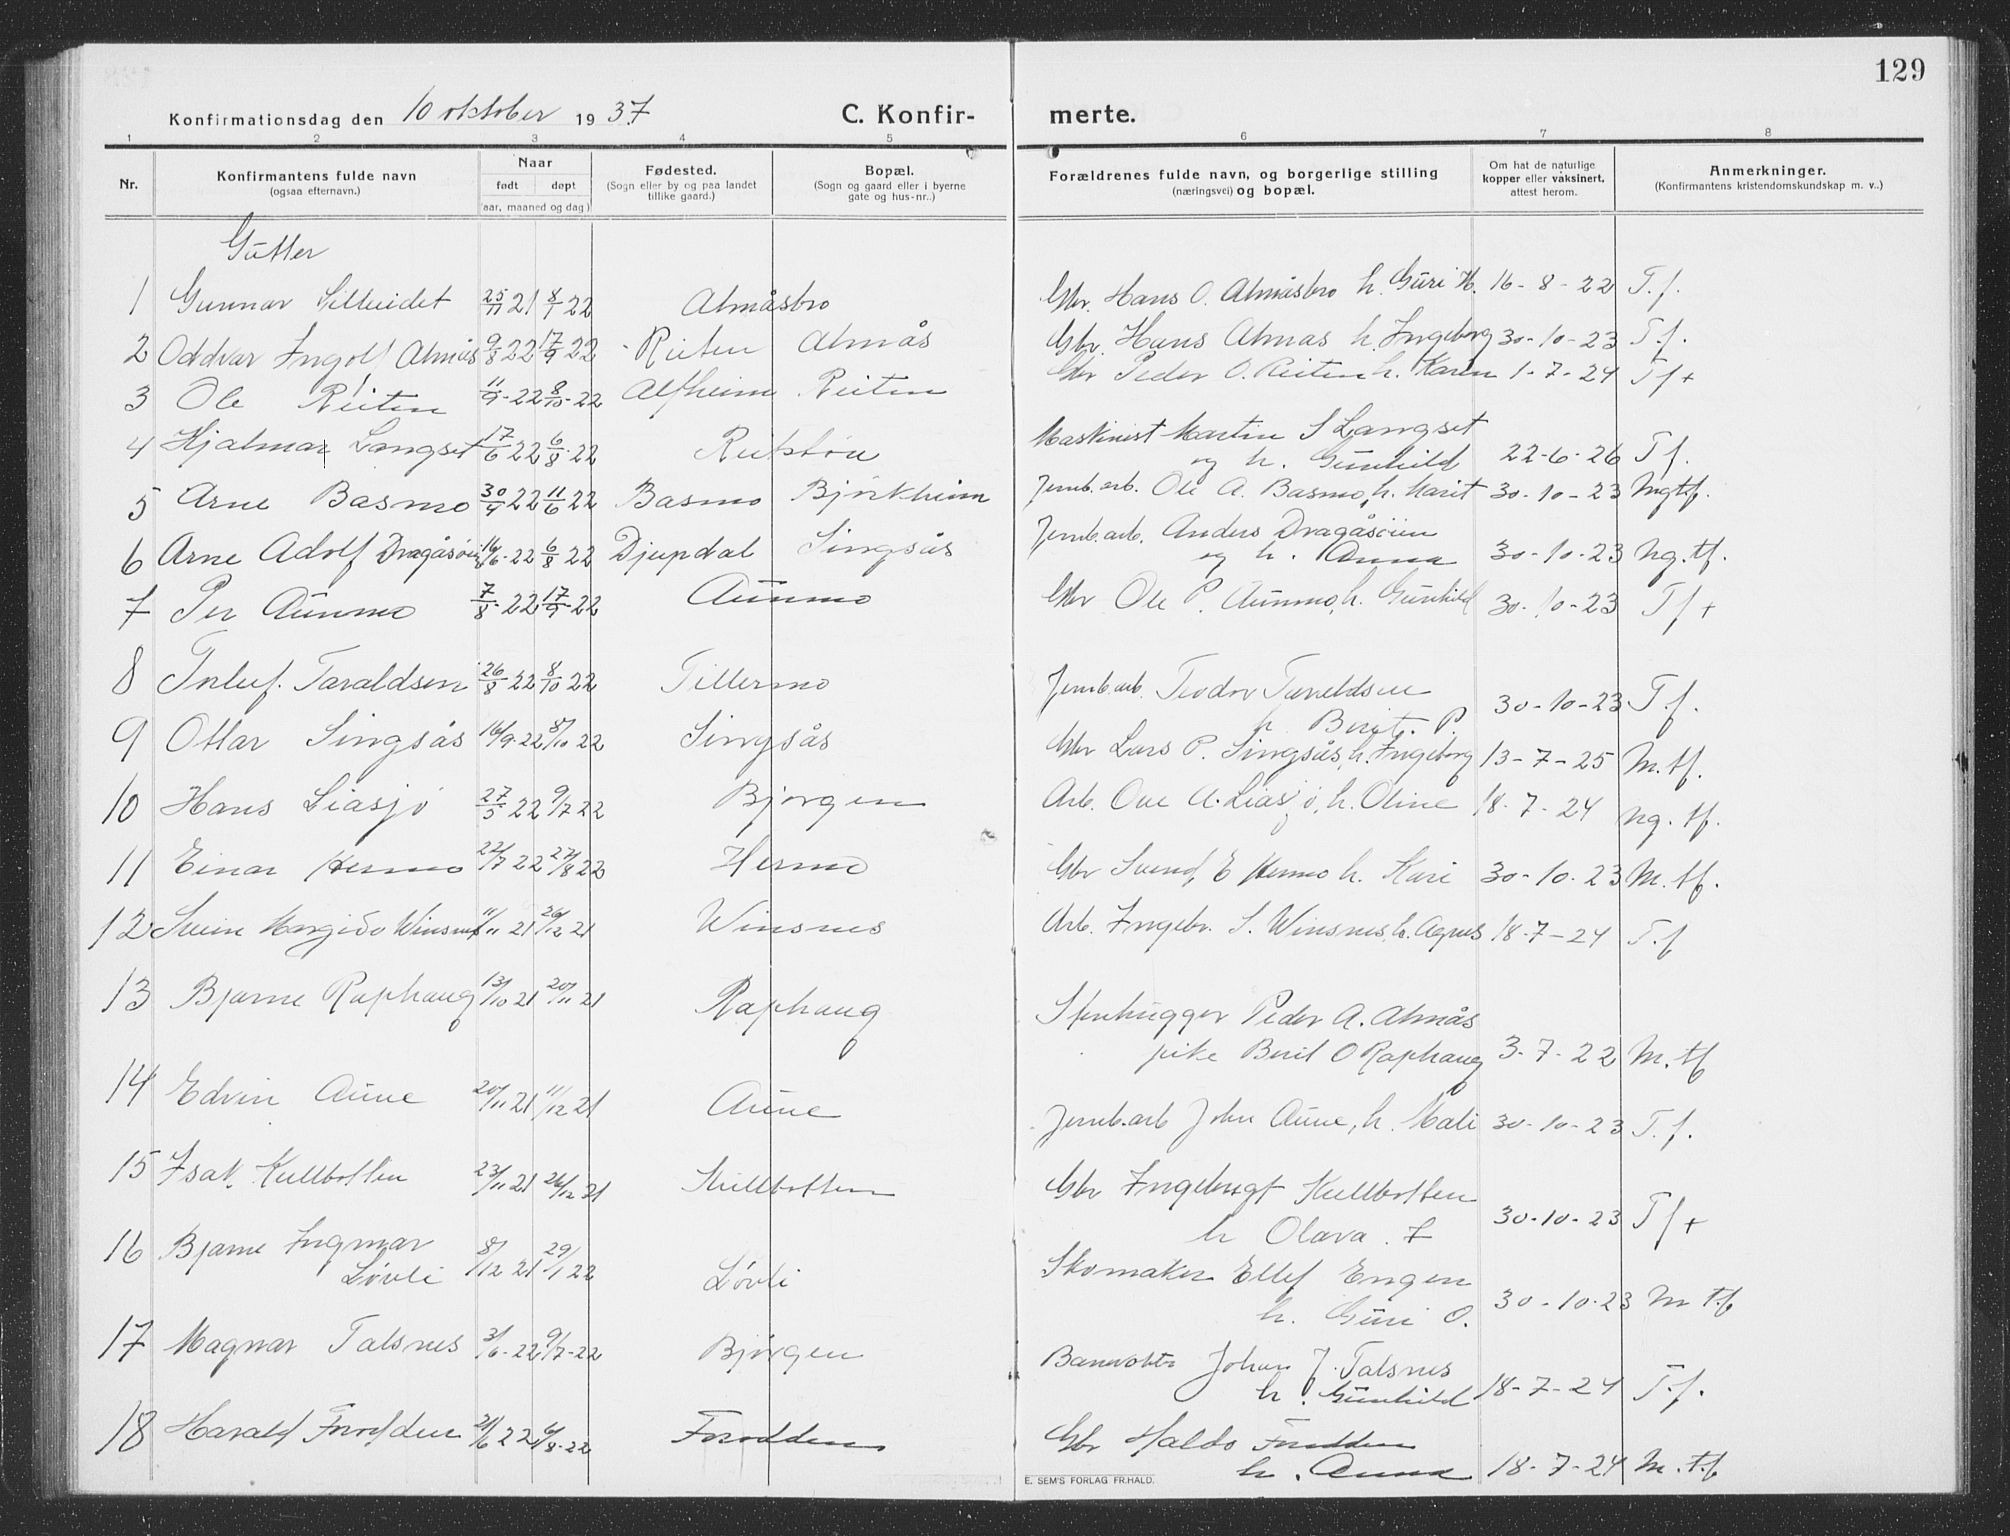 129
Konfirmationsdag den 10 oktober 1937 C. Konfir- merte.
1 2 3 4 5 6 7 8
Nr. Konfirmantens fulde navn (ogsaa efternavn.) Naar født døpt (aar, maaned og dag) Fødested. (Sogn eller by og paa landet tillike gaard.) Bopæl. (Sogn og gaard eller i byerne gate og hus-nr..) Forældrenes fulde navn, og borgerlige stilling (næringsvei) og bopæl. Om hat de naturlige kopper eller vaksinert, attest herom. Anmerkninger. (Konfirmantens kristendomskundskap m. v..)
Gutter
1 Gunnar 25/11 21 8/1 22 Almåsbro Gbr. Hans O. Almåsbro h. Guri H. 16-8-22 T.f.
2 Oddvar Ingolf Almås 9/8 22 17/9 22 Reiten Almås Gbr. Hans Almås h. Ingeborg 30-10-23 T.f.
3 Ole Reiten 11/9-22 8/10-22 Alfheim Reiten Gbr Peder O. Reiten h. Karen 1-7-24 Tf+
4 Hjalmar Langset 17/6 22 6/8-22 Reitstøa Maskinist Martin S Langset
og h. Gunhild 22-6-26 T f.
5 Arne Basmo 30/4 22 11/6 22 Basmo Bjørkheim Jernb.arb. Ole A. Basmo, h. Marit 30-10-23 Mgtf.
6 Arne Adolf Dragåsøien 16/6-22 6/8 22 Djupdal Singsås Jernb.arb. Anders Dragåsøien
og h. Anna 30-10-23 Ng.tf.
7 Per Aunmo 7/8-22 17/9-22 Aunmo Gbr Ole P. Aunmo, h. Gunhild 30-10-23 Tf+
8 Taraldsen 26/8 22 8/10 22 Tillermo Jernb.arb. Teodor Taraldsen
h Berit. P. 30-10-23 T.f.
9 Ottar Singsås 16/9-22 8/10 22 Singsås Gbr Lars P. Singsås, h. Ingeborg 13-7-25 M.tf.
10 Hans Liasjø 27/5 22 9/7 22 Bjørgen Arb. Ove A. Liasjø, h. Oline 18-7-24 Ng. tf.
11 Einar Hermo 22/7 22 27/8 22 Hermo Gbr Svend E Hermo h. Kari 30-10-23 M.tf.
12 Svein Margido Winsnes 11/11 21 26/12 21 Winsnes Arb. Ingebr. S. Winsnes, h. Agnes 18-7-24 T.f
13 Bjarne Raphaug 13/10 21 20/11 21 Raphaug Stenhugger Peder A. Almås
pike Berit O Raphaug 3-7-22 M.tf
14 Edvin Aune 20/11 21 11/12 21 Aune Jernb.arb John Aune, h. Mali 30-10-23 T.f.
15 Isak Kullbotten 23/11 21 26/12 21 Kullbotten Gbr Ingebrigt Kullbotten
h Olava. I 30-10-23 Tf+
16 Bjarne Ingmar
Løvli 8/12 21 29/1 22 Løvli Skomaker Ellef Engen
h. Guri O. 30-10-23 M tf
17 Magnar Talsnes 3/6-22 9/7-22 Bjørgen Banevokter Johan J. Talsnes
h. Gunhild 18-7-24 T.f.
18 Harald Frodden 21/6 22 6/8-22 Frodden Gbr Haldo Frodden
h. Anna 18-7-24 M.tf
E. SEM'S FORLAG FR.HALD.